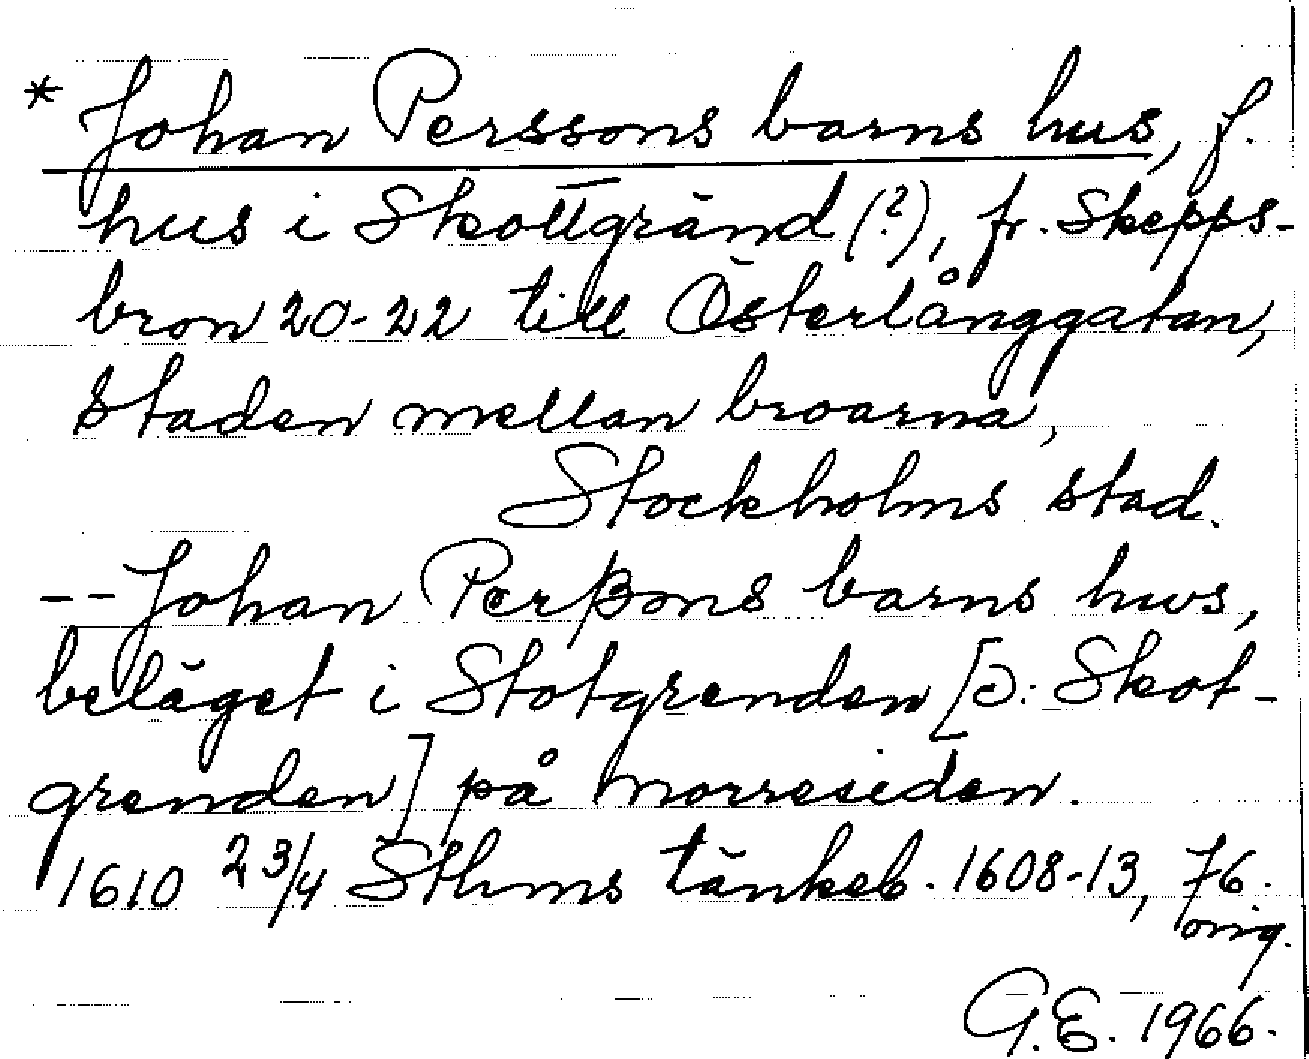 * Johan Perssons barns hus, f.
hus i Skottgränd (?), fr. Skepps-
bron 20-22 till Österlånggatan,
Staden mellan broarna,
Stockholms stad.
-- Johan Perßons barns hws,
beläget i Stotgrenden [ɔ: Skot-
grenden] på norresiden.
1610 23/4 Sthms tänkeb. 1608-13, 76.
orig.
G.E. 1966.